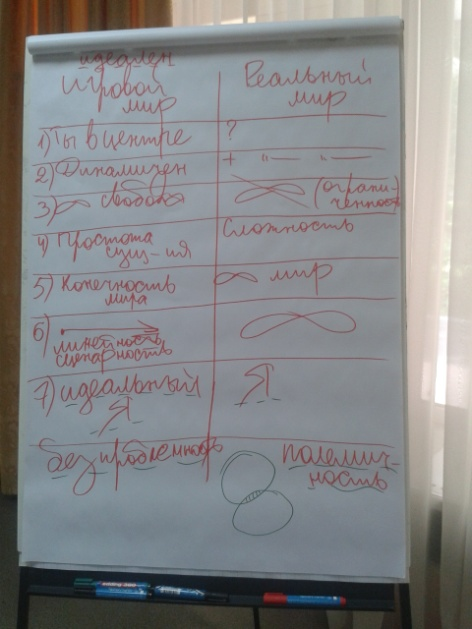 идеален
игровой
мир
Реальный
мир
1) Ты в центре
?
2) Динамичен
+ "— "—
3) ∞ свобода
∞ (ограни-
ченность
4) Простота
сущ-ия
Сложность
5) Конечность
мира
∞ мир
6)
линейность,
сценарность
∞
7) идеальный
Я
Я
безпроблемность
полемич-
ность